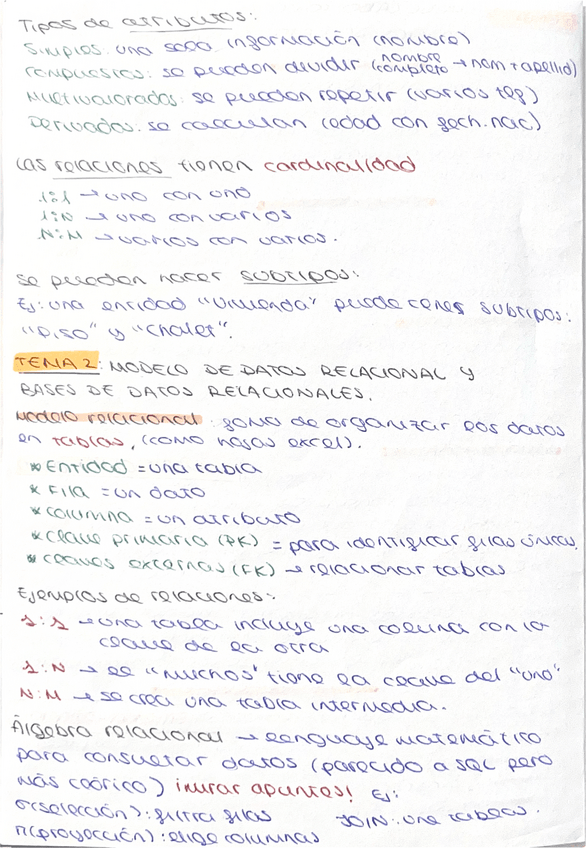 Tipos de atributos:
Simples: una sola información (nombre)
Compuestos: se pueden dividir (nombre completo → nom + apellid)
Multivalorados: se pueden repetir (varios tlf)
Derivados: se calculan (edad con fech.nac)
Las relaciones tienen cardinalidad
1:1 → uno con uno
1:N → uno con varios
N:M → varios con varios.
Se pueden hacer SUBTIPOS:
Ej: una entidad "Vivienda" puede tener subtipos:
"Piso" y "Chalet".
TEMA 2: MODELO DE DATOS RELACIONAL Y
BASES DE DATOS RELACIONALES.
Modelo relacional: forma de organizar los datos
en tablas, (como hojas excel).
* Entidad = una tabla
* Fila = un dato
* Columna = un atributo
* Clave primaria (PK) = para identificar filas únicas.
* Claves externas (FK) → relacionar tablas
Ejemplos de relaciones:
1:1 → una tabla incluye una columna con la
clave de la otra
1:N → el "muchos" tiene la clave del "uno"
N:M → se crea una tabla intermedia.
Álgebra relacional → lenguaje matemático
para consultar datos (parecido a SQL pero
más teórico) ¡mirar apuntes! Ej:
σ(selección): filtra filas JOIN: une tablas.
π(proyección): elige columnas